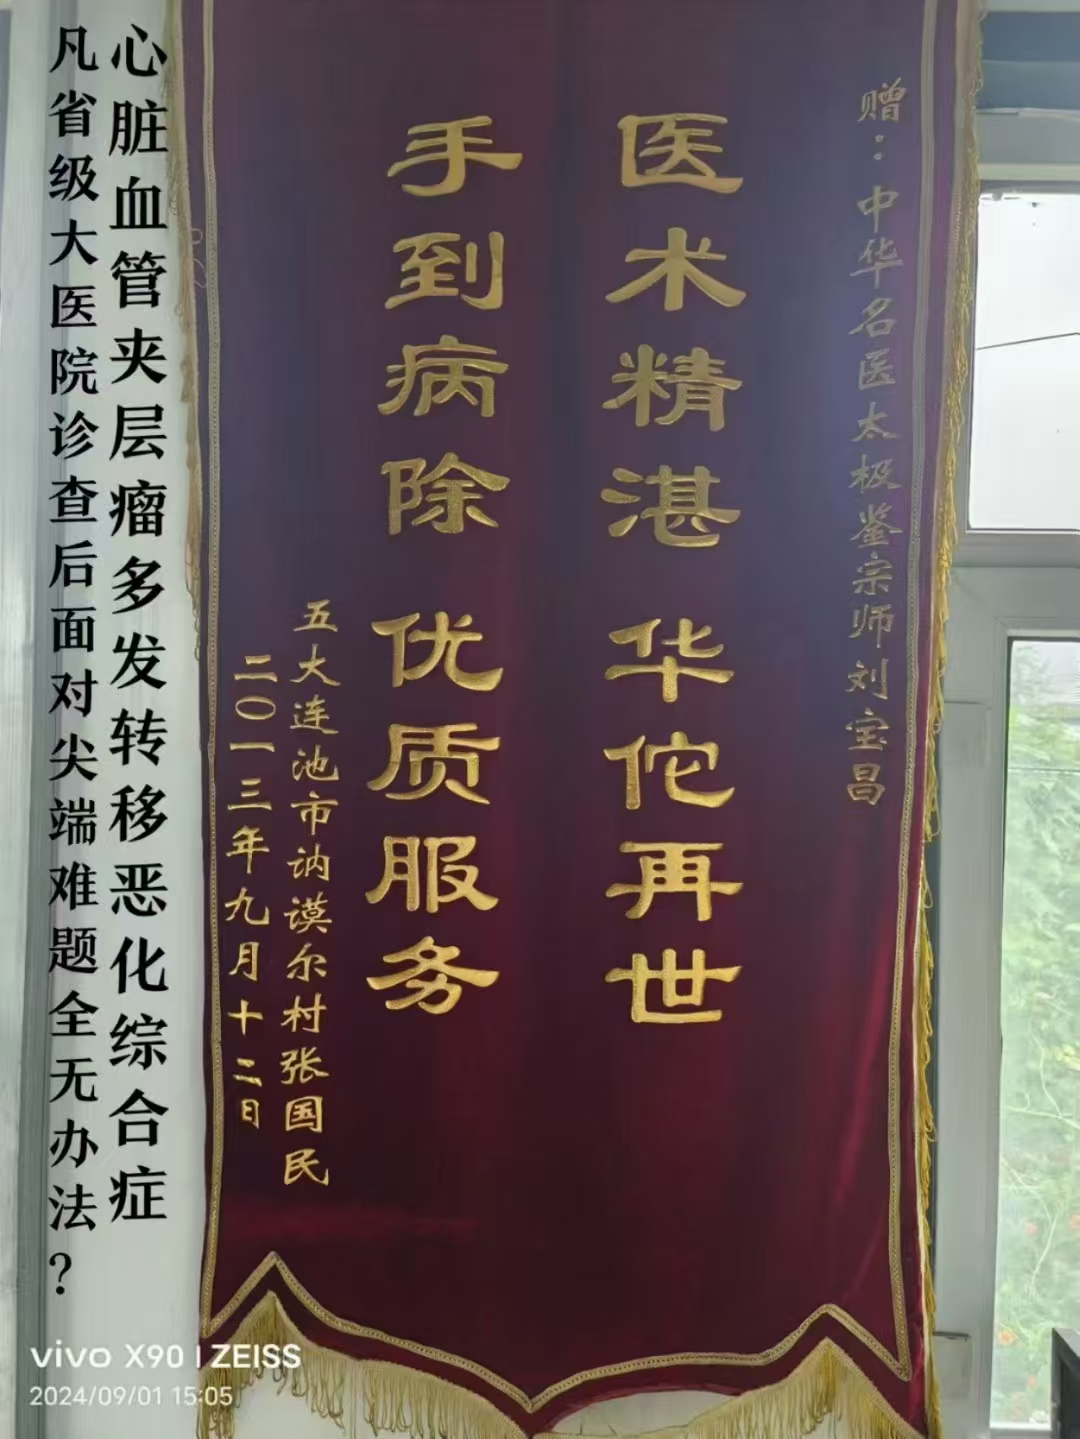 赠：中华名医太极鉴宗师刘宝昌
医术精湛 华佗再世
手到病除 优质服务
五大连池市讷谟尔村张国民
二〇一三年九月十二日
心脏血管夹层瘤多发转移恶化综合症
凡省级大医院诊查后面对尖端难题全无办法？
vivo X90 | ZEISS
2024/09/01 15:05